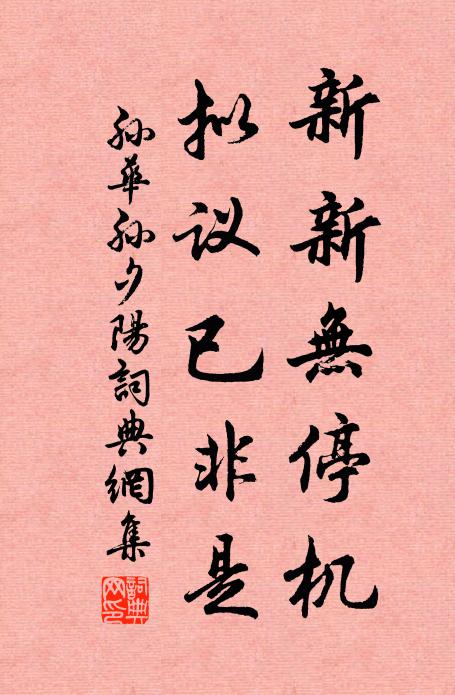 新新無停机
拟议已非是
孙華孙夕陽詞典網集
詞典網印